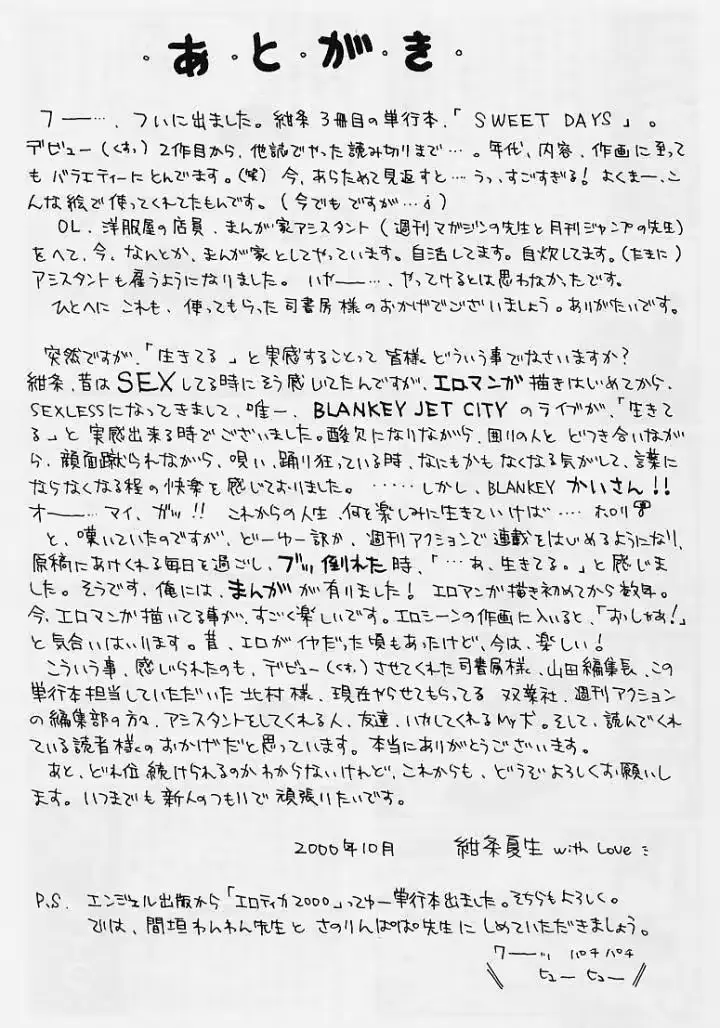 ・あ・と・が・き・
フー…、ついに出ました。紺条3冊目の単行本、「SWEET DAYS」。
デビュー(くすっ)2作目から、他誌でやった読み切りまで…。年代、内容、作画に至って
もバラエティーにとんでます。(笑)今、あらためて見返すと…うっ、すごすぎる!よくまー、こ
んな絵で使ってくれてたもんです。(今でもですが…;)
OL、洋服屋の店員、まんが家アシスタント(週刊マガジンの先生と月刊ジャンプの先生)
をへて、今、なんとか、まんが家としてやっています。自活してます。自炊してます。(たまに)
アシスタントも雇うようになりました。いやー…、やってけるとは思わなかったです。
ひとへにこれも、使ってもらった司書房様のおかげでございましょう。ありがたいです。
突然ですが、「生きてる」と実感することって皆様、どういう事でなさいますか?
紺条、昔はSEXしてる時にそう感じてたんですが、エロマンガ描きはじめてから、
SEXLESSになってきまして、唯一、BLANKEY JET CITYのライブが、「生きて
る」と実感出来る時でございました。酸欠になりながら、囲りの人とどつき合いなが
ら、顔面蹴られながら、唄い、踊り狂っている時、なにもかもなくなる気がして、言葉に
ならなくなる程の快楽を感じておりました。……しかし、BLANKEYかいさん!!
オー…マイ、ガッ!!これからの人生、何を楽しみに生きていけば…
と、嘆いていたのですが、どーゆー訳か、週刊アクションで連載をはじめるようになり、
原稿にあけくれる毎日を過ごし、ブッ倒れた時、「…あ、生きてる。」と感じま
した。そうです、俺には、まんがが有りました!エロマンガ描き初めてから数年。
今、エロマンガ描いてる事が、すごく楽しいです。エロシーンの作画に入いると、「おっしゃあ!」
と気合いはいります。昔、エロがイヤだった頃もあったけど、今は、楽しい!
こういう事、感じられたのも、デビュー(くすっ)させてくれた司書房様、山田編集長、この
単行本担当していただいた北村様、現在やらせてもらってる双葉社、週刊アクション
の編集部の方々、アシスタントをしてくれる人、友達、いかしてくれるMy犬。そして、読んでくれ
ている読者様のおかげだと思っています。本当にありがとうございます。
あと、どれ位続けられるのかわからないけれど、これからも、どうぞよろしくお願いし
ます。いつまでも新人のつもりで頑張りたいです。
2000年10月 紺条夏生 with Love
P.S. エンジェル出版から「エロティカ2000」ってゆー単行本出ました。そちらもよろしく。
では、間垣わんわん先生とさのりんぱぱ先生にしめていただきましょう。
ワーッ パチパチ
ヒューヒュー